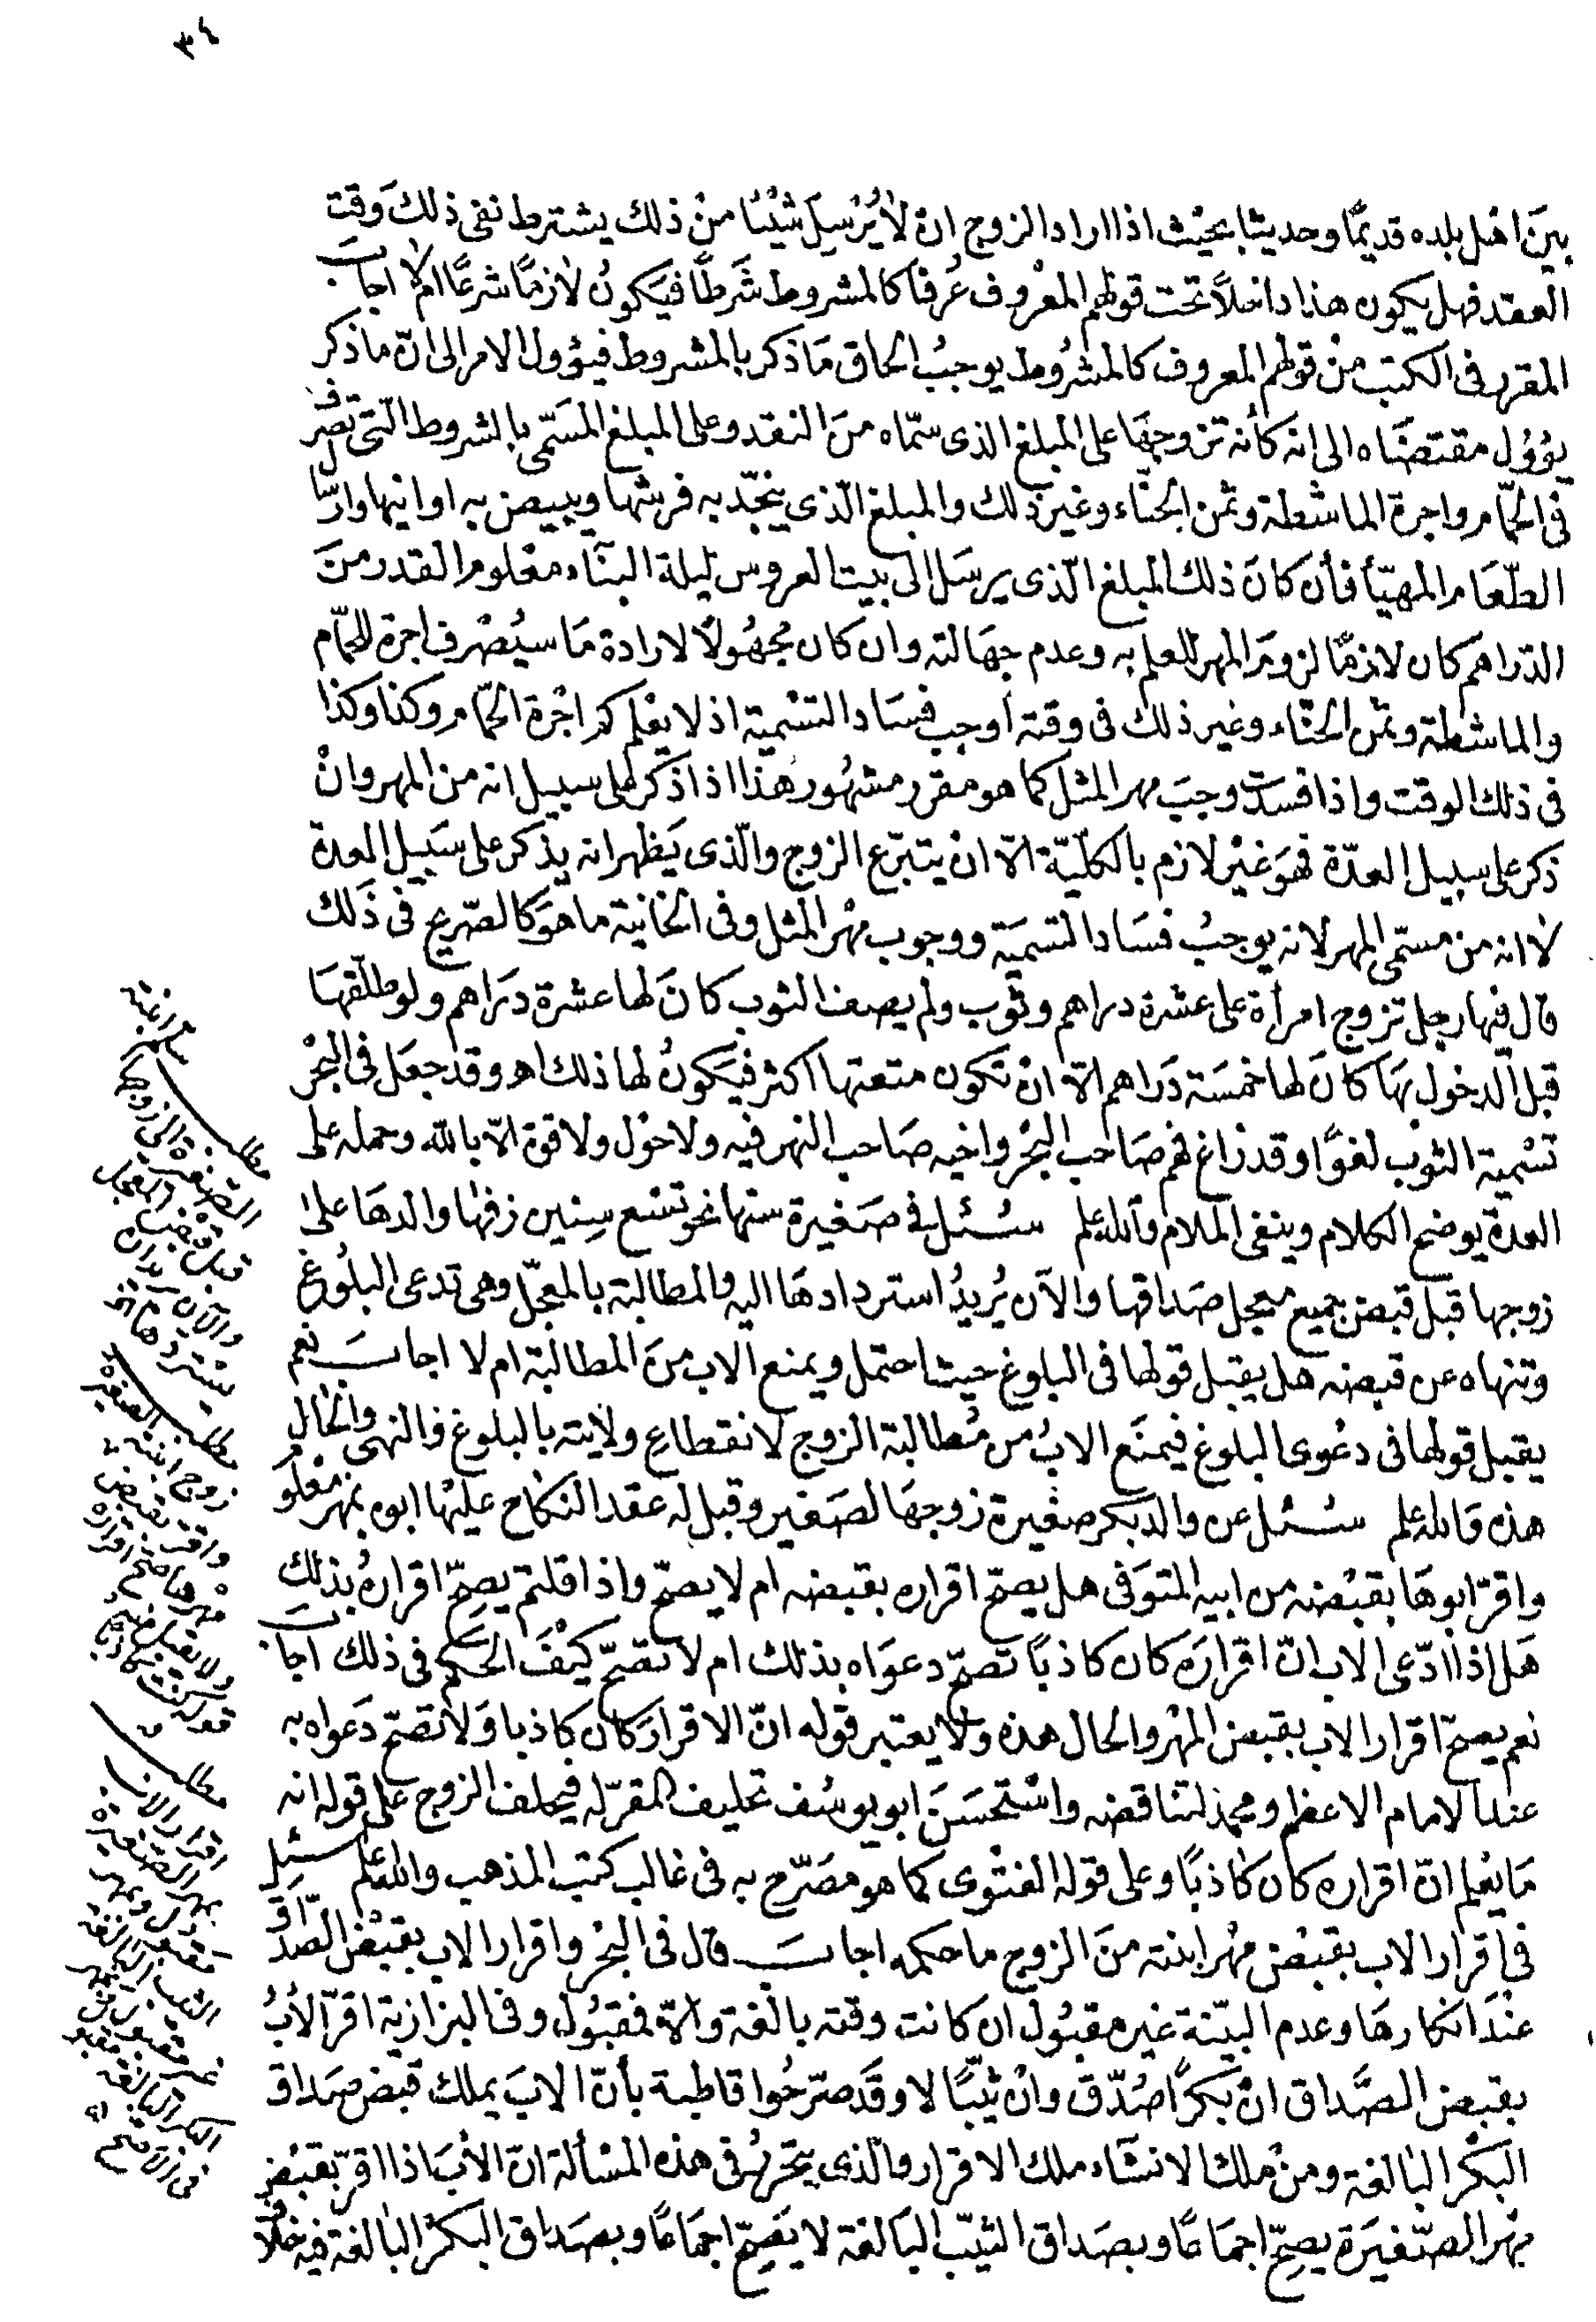 ٣٤
بين اهل بلده قديمًا وحديثا بحيث اذا اراد الزوج ان لا يُرْسِلَ شيْئًا منْ ذلك يشترط نفى ذلكَ وقت
العقد فهل يكون هذا داخلاً تحت قولهم المعْروف عُرفًا كالمشروط شَرطًا فيَكونُ لازمًا شرعًا ام لا اجاب
المقرر فى الكتب منْ قولهم المعروف كالمشرُوط يوجبُ الحاق مَا ذكر بالمشروط فيؤول الامر الى انّ ما ذكر
يؤول مقتضَاه الى انه كأنه تزوجهَا على المبلغ الذى سمّاه منَ النقد وعلى المبلغ المسَمّى بالشروط الّتى تصرف
فى الحمّام واجرة الماشطة وثمن الحنّاء وغير ذلك والمبلغ الّذى ينجّد به فرشها ويبيض به اوانيها وامّا
الطّعَام المهيّأ فأن كانَ ذلك المبلغ الّذى يرسَل الى بيت العروس ليلة البنَآء معْلوم القدر منَ
الدّراهم كان لازمًا لزومَ المهر للعلم به وعدم جهَالته وان كان مجهُولاً لارادة مَا سيُصْرف اجرة للحمّام
والماشطة وثمن الحنّاء وغير ذلك فى وقته اوجب فسَاد التسْمية اذ لا يعْلم كم اجْرة الحمّام وكذا وكذا
فى ذلك الوقت واذا فسدَت وجبَ مهر المثل كما هو مقرر مشهُور هذا اذا ذكر على سبيل انه من المهر وانْ
ذكر على سبيل العدّة فهوَ غيْر لازم بالكلّيّة الاّ انْ يتبرّع الزوج والّذى يَظهر انه يذكر على سَبيل العدة
لا انه من مسمّى المهر لانه يوجبُ فسَاد التسميَة ووجوب مهْر المثل وفى الخانية ما هوَ كالصّريح فى ذَلك
قال فيها رجل تزوج امرأة على عشرة دراهم وثوب ولم يصف الثوب كانَ لها عشرة دَراهم ولو طلّقهَا
قبل الدخول بهَا كانَ لها خمسَة دَراهم الاّ انْ تكون متعتها اكثر فيَكونُ لها ذلك اهـ وقد جعَل فى البحْر
تسْمية الثوب لغوًا وقد زاغ فهم صَاحب البحْر واخيه صَاحب النهر فيه ولا حوْل ولا قوة الاّ بالله وحمله على
العدة يوضح الكلام وينفى الملام والله اعلم سُئل فى صغيرة سنها نحو تسْع سِنين زفها والدهَا على
زوجها قبل قبض جميع معجل صَداقها والآن يُريدُ استردادهَا اليه والمطالبة بالمعجّل وهى تدعى البلُوغ
وتنهاه عن قبضه هل يقبل قولها فى البلوغ حيث احتمل ويمنع الاب منَ المطالبة ام لا اجاب نعم
يقبل قولها فى دعْوى البلوغ فيمنَع الابُ من مُطالبة الزوج لانقطاع ولايته بالبلوغ والنهى والحال
هذه والله اعلم سُئل عن والد بكر صغيرة زوجهَا لصَغير وقبل له عقد النكاح عليْها ابوه بمهر معْلو
واقرّ ابوهَا بقبْضه من ابيه المتوَفى هل يصحّ اقراره بقبضه ام لا يصحّ واذا قلتم يصِحّ اقرارهُ بذلك
هَل اذا ادّعى الاب انّ اقرارَه كان كاذبًا تصحّ دعوَاه بذلك ام لا تصحّ كيْفَ الحكم فى ذلك اجاب
نعم يصحّ اقرار الاب بقبض المهْر والحال هذه ولا يعتبر قوله انّ الاقرارَ كان كاذبا وَلا تصحّ دَعواه به
عند الامام الاعظم ومحمد لتناقضه واسْتحسَنَ ابو يوسُف تحليف المقرّ له فيحلف الزوج على قوله انه
مَا يعْلم انّ اقراره كان كاذبًا وعلى قوله الفتْوى كما هو مصَرّح به فى غالب كتب المذهب والله اعلم سئل
فى اقرار الاب بقبْض مهْر ابنته منَ الزوج ما حكمه اجابَ قال فى البحْر واقرار الاب بقبْض الصّداق
عنْدَ انكارهَا وعدم البيّنة غير مقبُول ان كانت وقته بالغة والاّ فمقبُول وفى البزازية اقرّ الأبُ
بقبض الصَّداق انْ بكرًا صُدّق وانْ ثيّبًا لا وقَد صرّحُوا قاطبة بأنّ الابَ يملك قبض صَداق
البكْر البالغة ومنْ ملك الانشَاء ملك الاقرار والّذى يتحَرّرُ فى هذه المسْألة انّ الأبَ اذا اقرّ بقبْض
مهْر الصّغيرَة يصِحّ اجمَاعًا وبصَداق الثيّب البَالغة لا يَصِحّ اجمَاعًا وبصَداق البكْر البَالغة فيه خلاف
مطلب
الصغيرة الى زوجها
قبل قبض المعجل
والآن يريد ان
يستردها
مطلب
زوج ابنته الصغيرة
واقر بقبض
مهرها صح اقراره
مطلب
اقرار الاب
بمهر الصغيرة
مقبول وبمهر
الثيب البالغة
غير مقبول وبمهر
البكر البالغة مقبول
فى الاصح